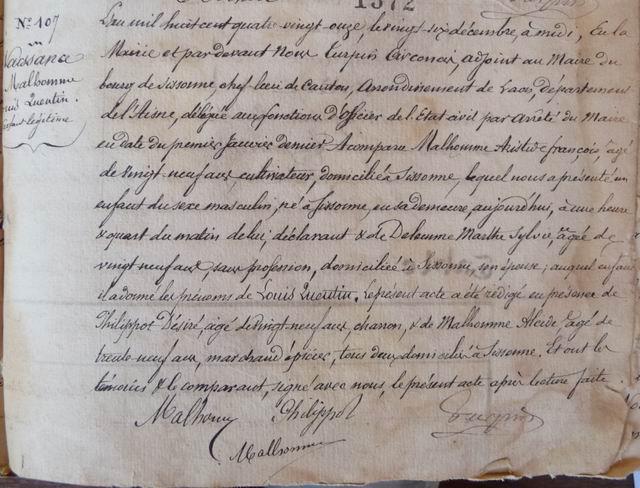 1372
N° 107
Naissance
Malhomme
Louis Quentin.
enfant légitime
L'an mil huit cent quatre vingt onze, le vingt six décembre, à midi, En la
Mairie et par devant Nous Turpin Circoncis, adjoint au Maire du
bourg de Sissonne, chef-lieu de Canton, Arrondissement de Laon, département
de l'Aisne, délégué aux fonctions d'Officier de l'Etat civil par Arrêté du Maire
en date du premier Janvier dernier A comparu Malhomme Aristide françois, âgé
de vingt-neuf ans, cultivateur, domicilié à Sissonne, lequel nous a présenté un
enfant du sexe masculin, né à Sissonne, en sa demeure, aujourd'hui, à une heure
& quart du matin de lui, déclarant & de Delomme Marthe Sylvie, âgée de
vingt neuf ans, sans profession, domiciliée à Sissonne, son épouse; auquel enfant
il a donné les prénoms de Louis Quentin. Le présent acte a été rédigé en présence de
Philippot Désiré, âgé de vingt-neuf ans charron, & de Malhomme Alcide, âgé de
trente-neuf ans, marchand épicier, tous deux domiciliés à Sissonne. Et ont les
témoins & le comparant, signé avec nous, le présent acte après lecture faite.
Malhomme Philippot Turpin
Malhomme